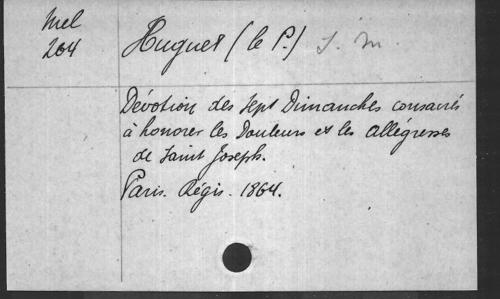 Mel
264
Huguet (le P.) S. M.
Dévotion des Sept Dimanches consacrés
à honorer les Douleurs et les Allégresses
de Saint Joseph.
Paris. Régis. 1864.